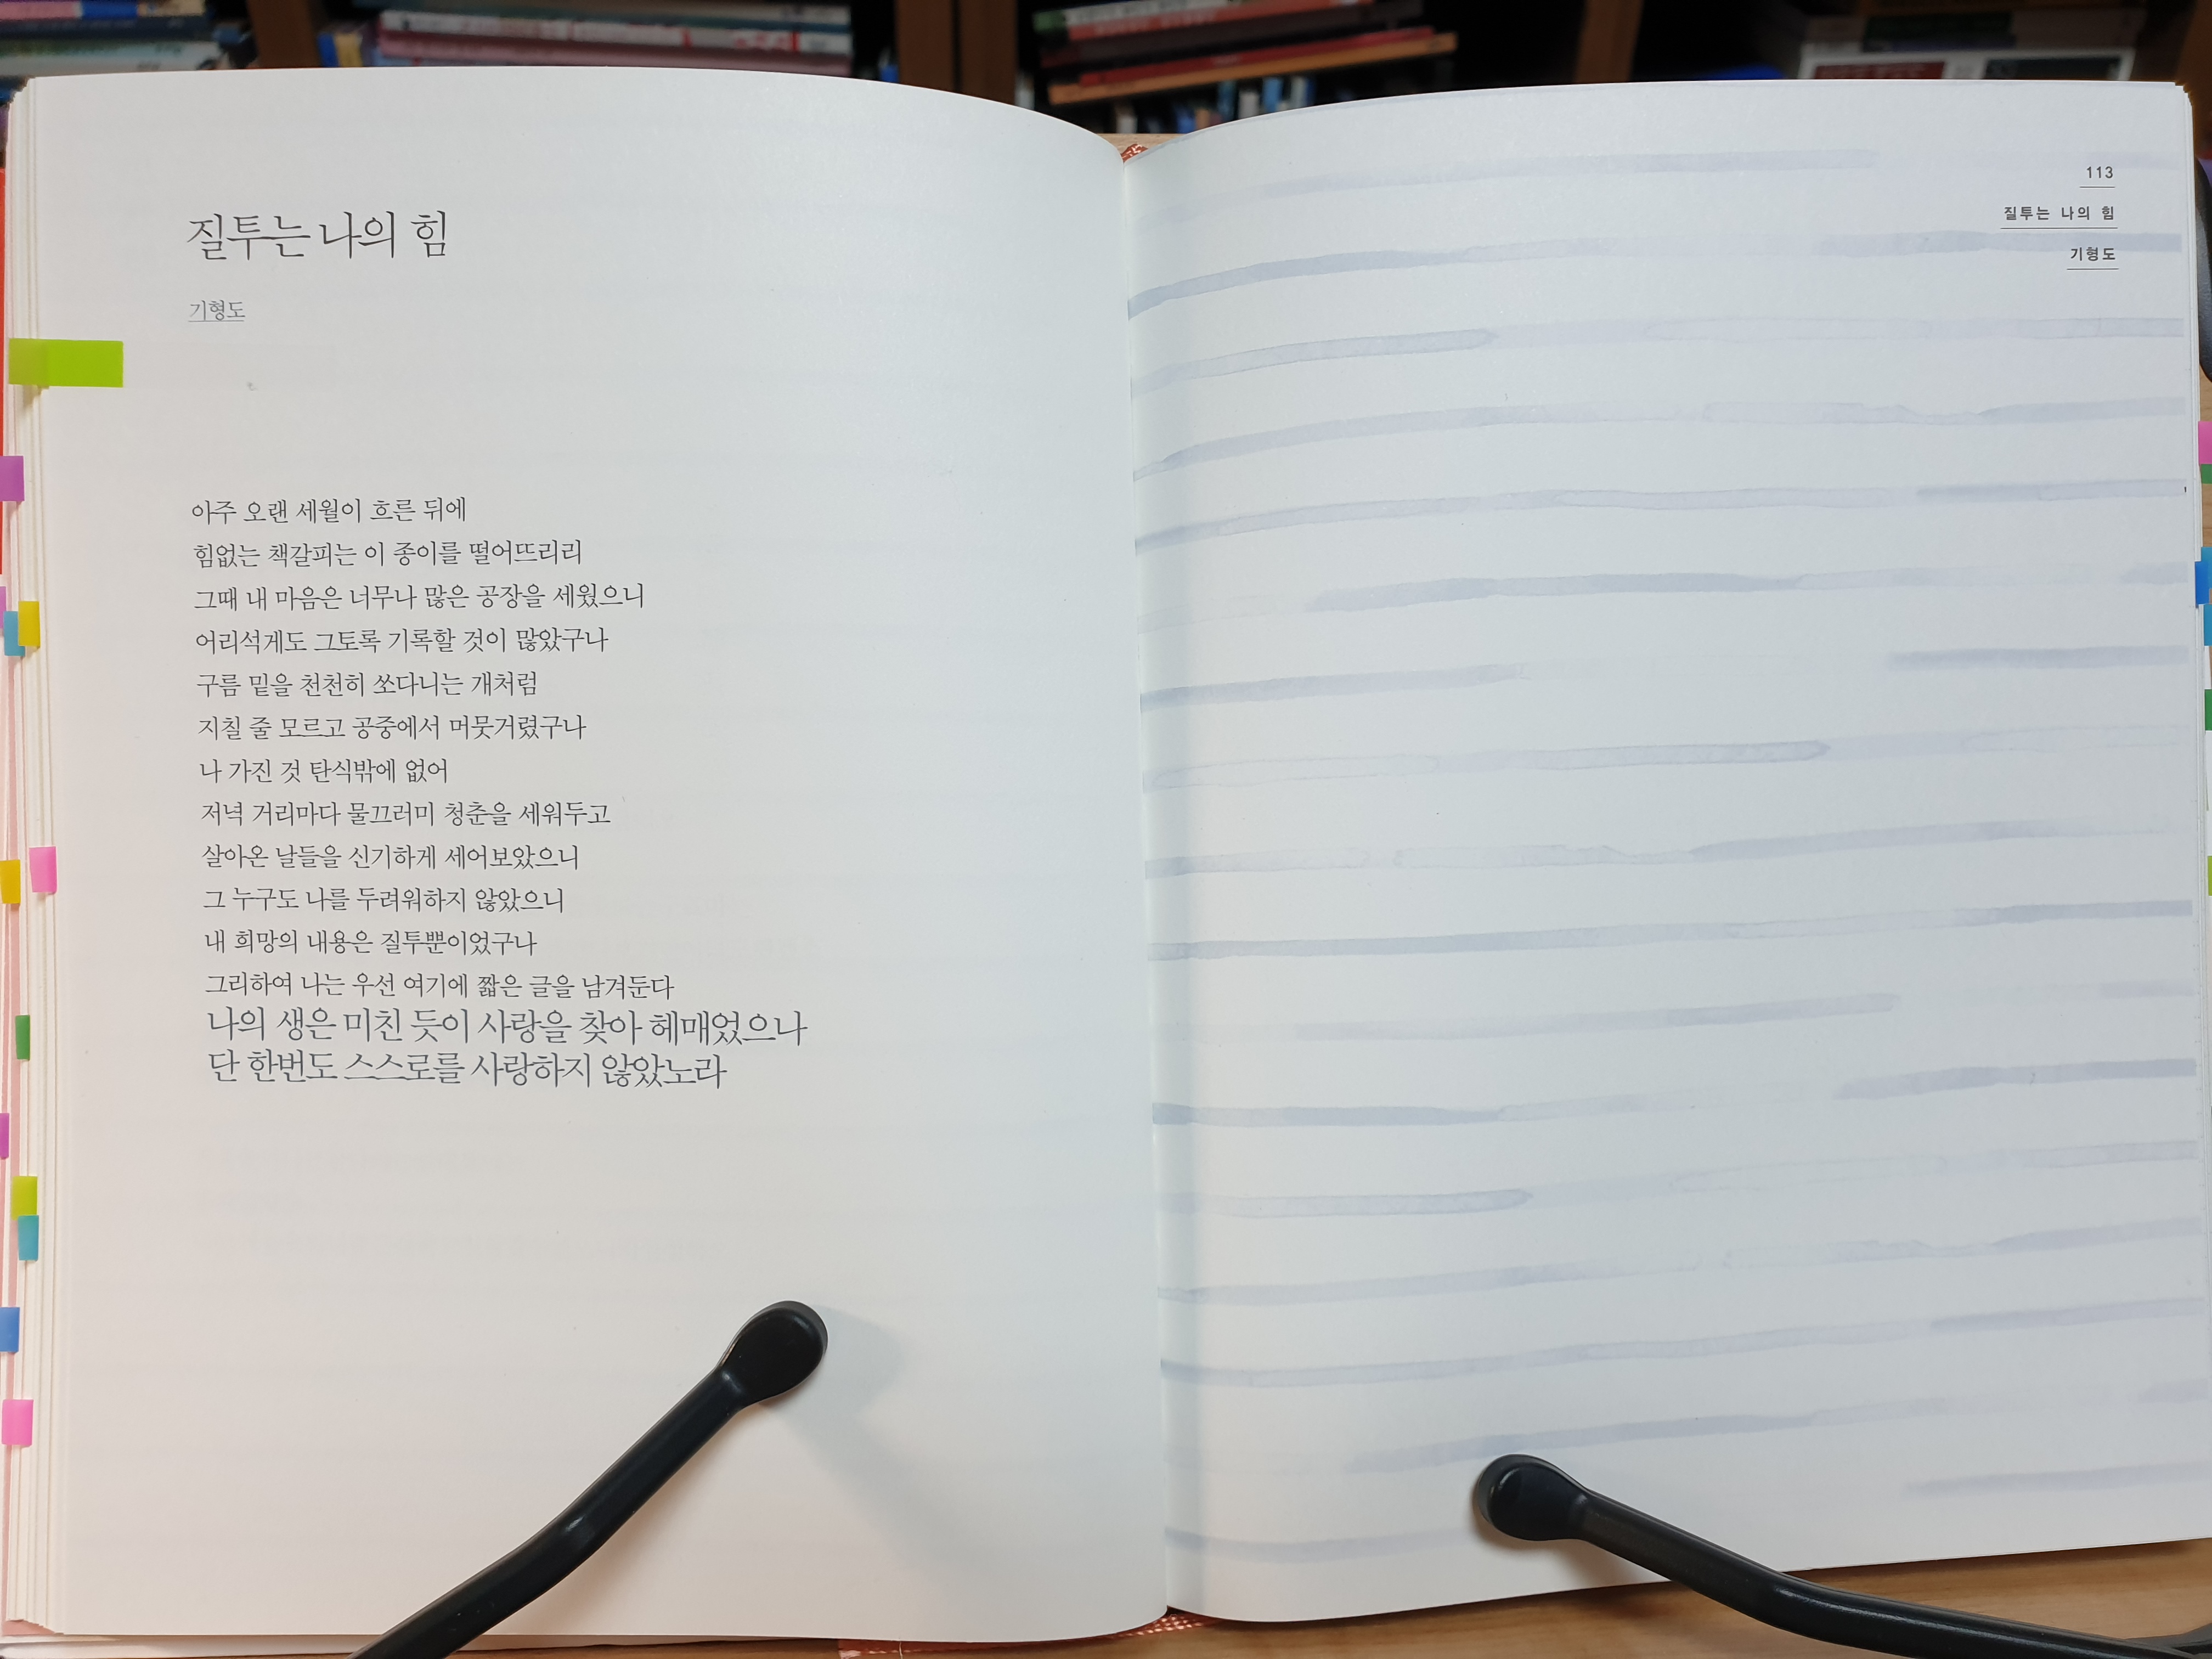 질투는 나의 힘
기형도
아주 오랜 세월이 흐른 뒤에
힘없는 책갈피는 이 종이를 떨어뜨리리
그때 내 마음은 너무나 많은 공장을 세웠으니
어리석게도 그토록 기록할 것이 많았구나
구름 밑을 천천히 쏘다니는 개처럼
지칠 줄 모르고 공중에서 머뭇거렸구나
나 가진 것 탄식밖에 없어
저녁 거리마다 물끄러미 청춘을 세워두고
살아온 날들을 신기하게 세어보았으니
그 누구도 나를 두려워하지 않았으니
내 희망의 내용은 질투뿐이었구나
그리하여 나는 우선 여기에 짧은 글을 남겨둔다
나의 생은 미친 듯이 사랑을 찾아 헤매었으나
단 한번도 스스로를 사랑하지 않았노라
113
질투는 나의 힘
기형도